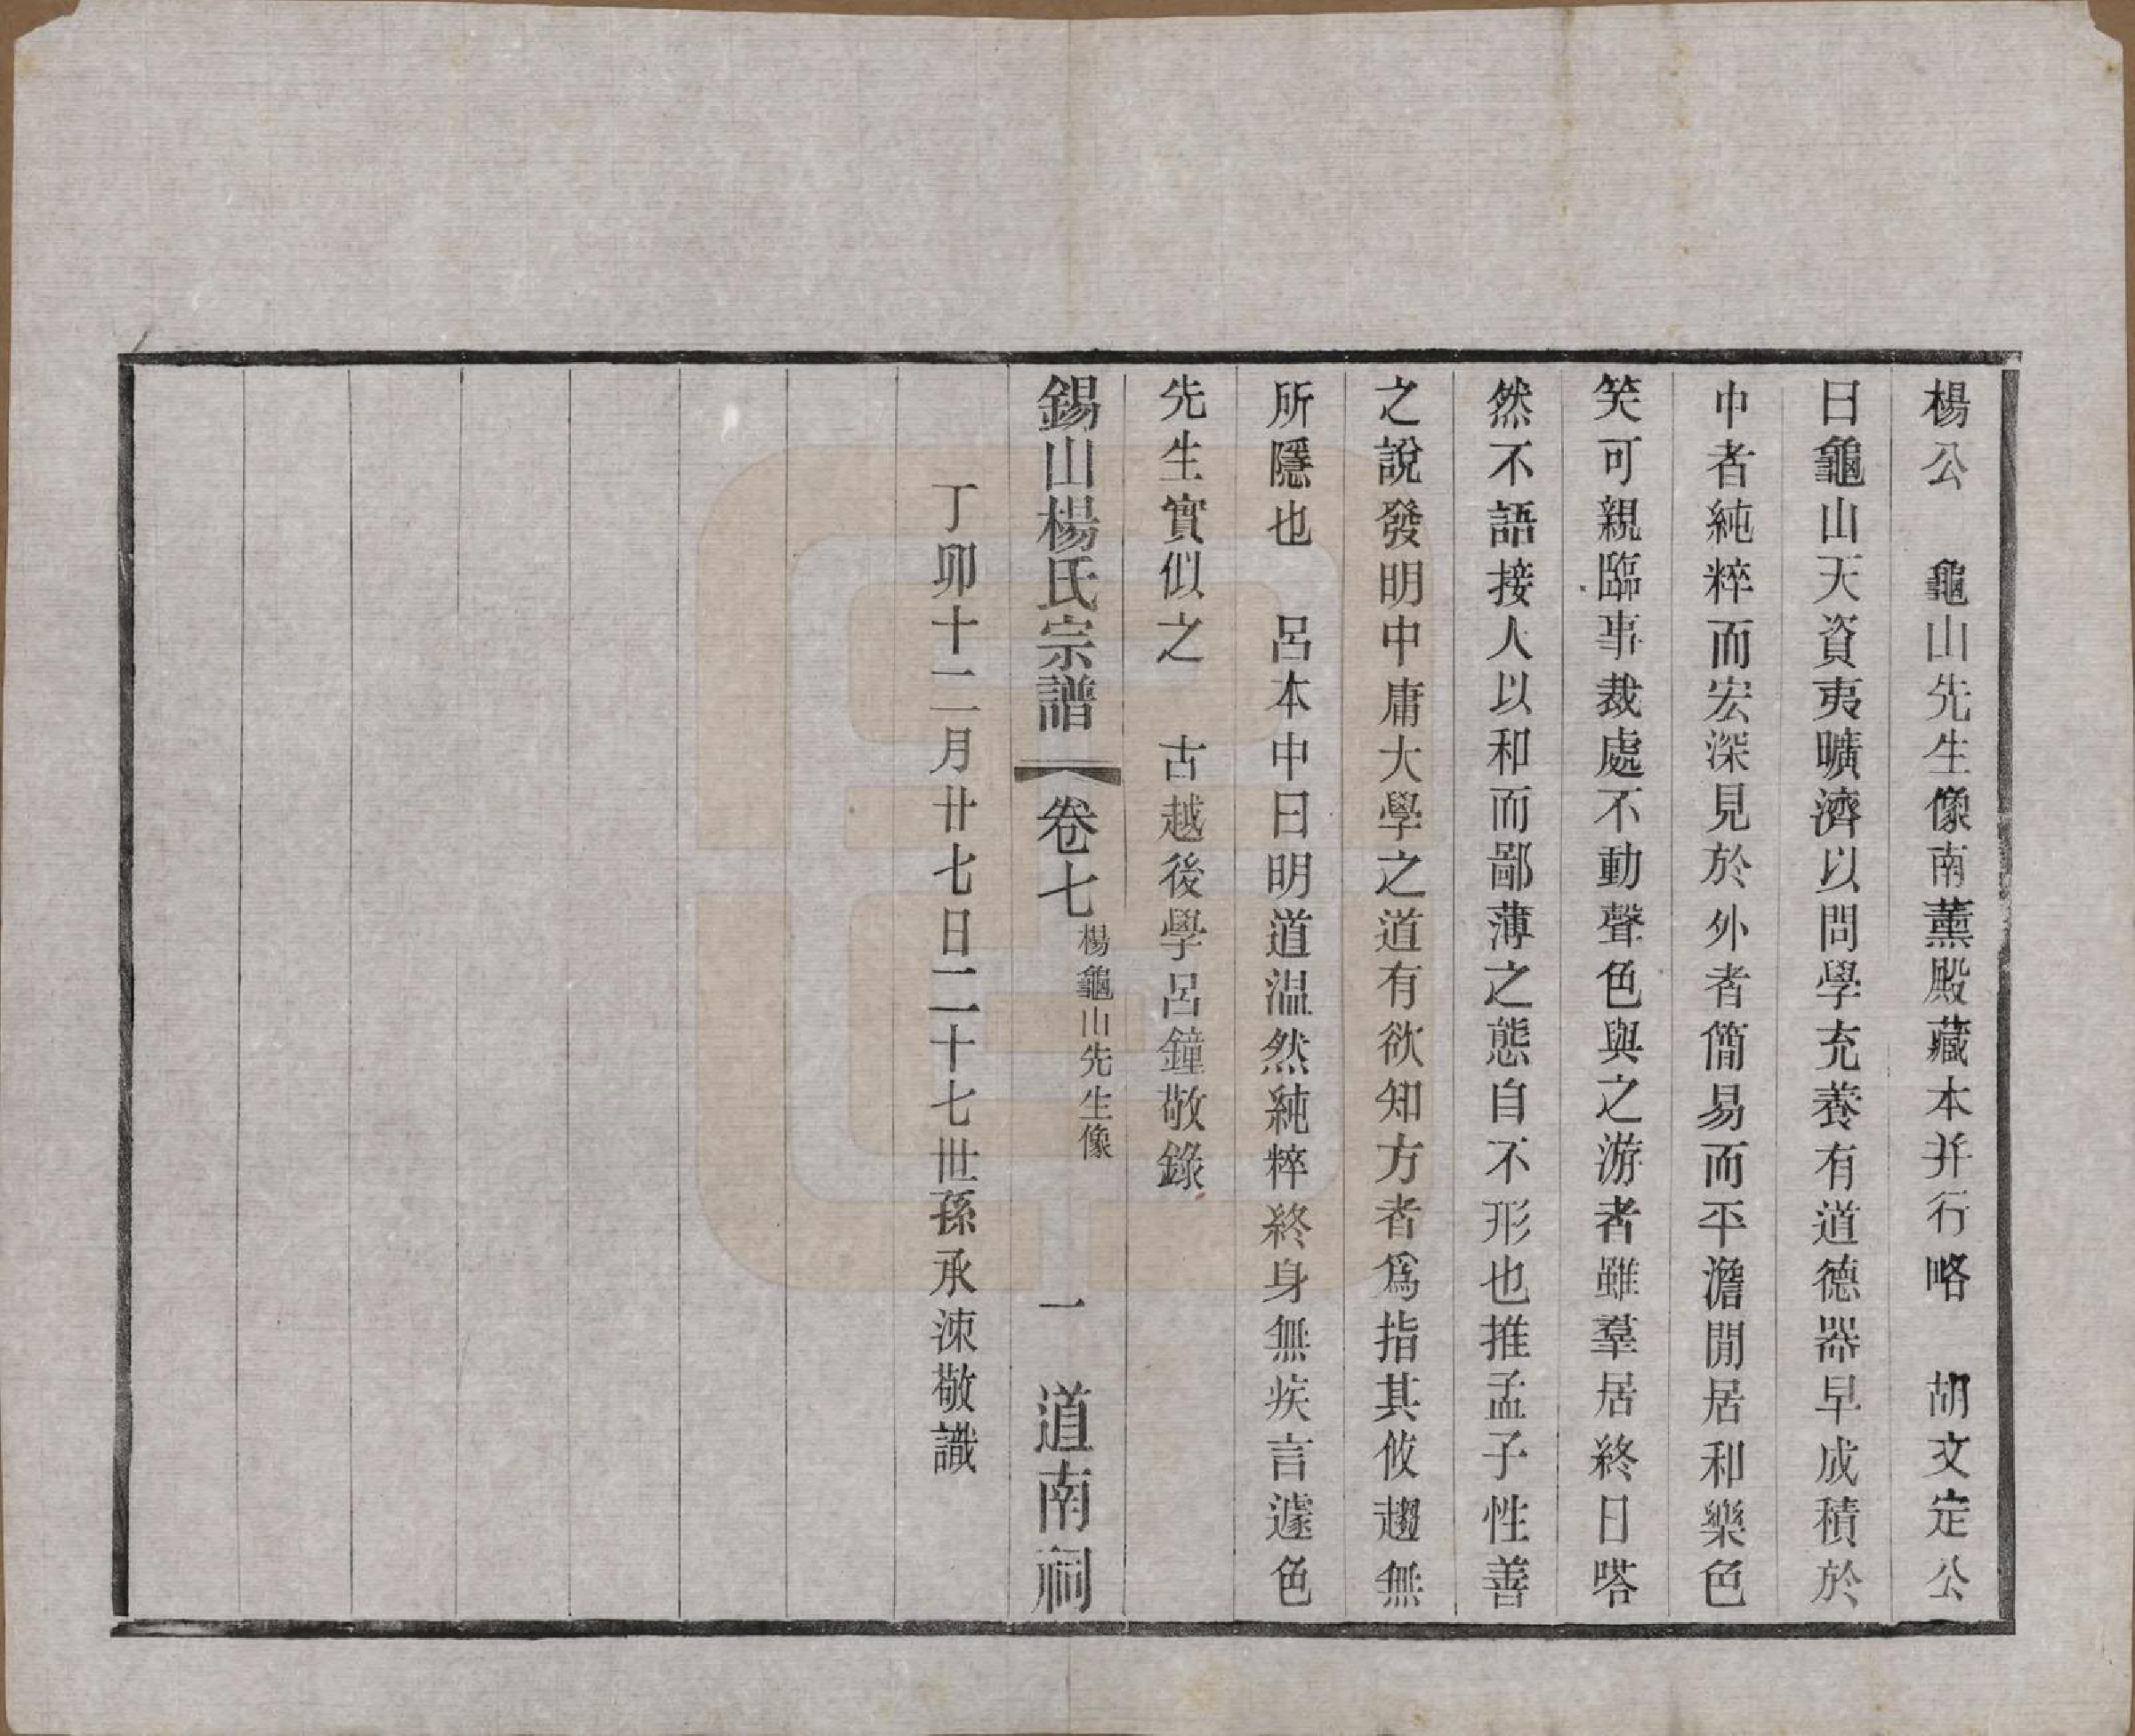 楊公　龜山先生像南薰殿藏本幷行略　胡文定公
曰龜山天資夷曠濟以問學充養有道德器早成積於
中者純粹而宏深見於外者簡易而平澹閒居和樂色
笑可親臨事裁處不動聲色與之游者雖羣居終日嗒
然不語接人以和而鄙薄之態自不形也推孟子性善
之說發明中庸大學之道有欲知方者爲指其攸趨無
所隱也　呂本中曰明道温然純粹終身無疾言遽色
先生實似之　古越後學呂鐘敬錄
錫山楊氏宗譜 卷七 楊龜山先生像 一 道南祠
丁卯十二月廿七日二十七世孫承涑敬識